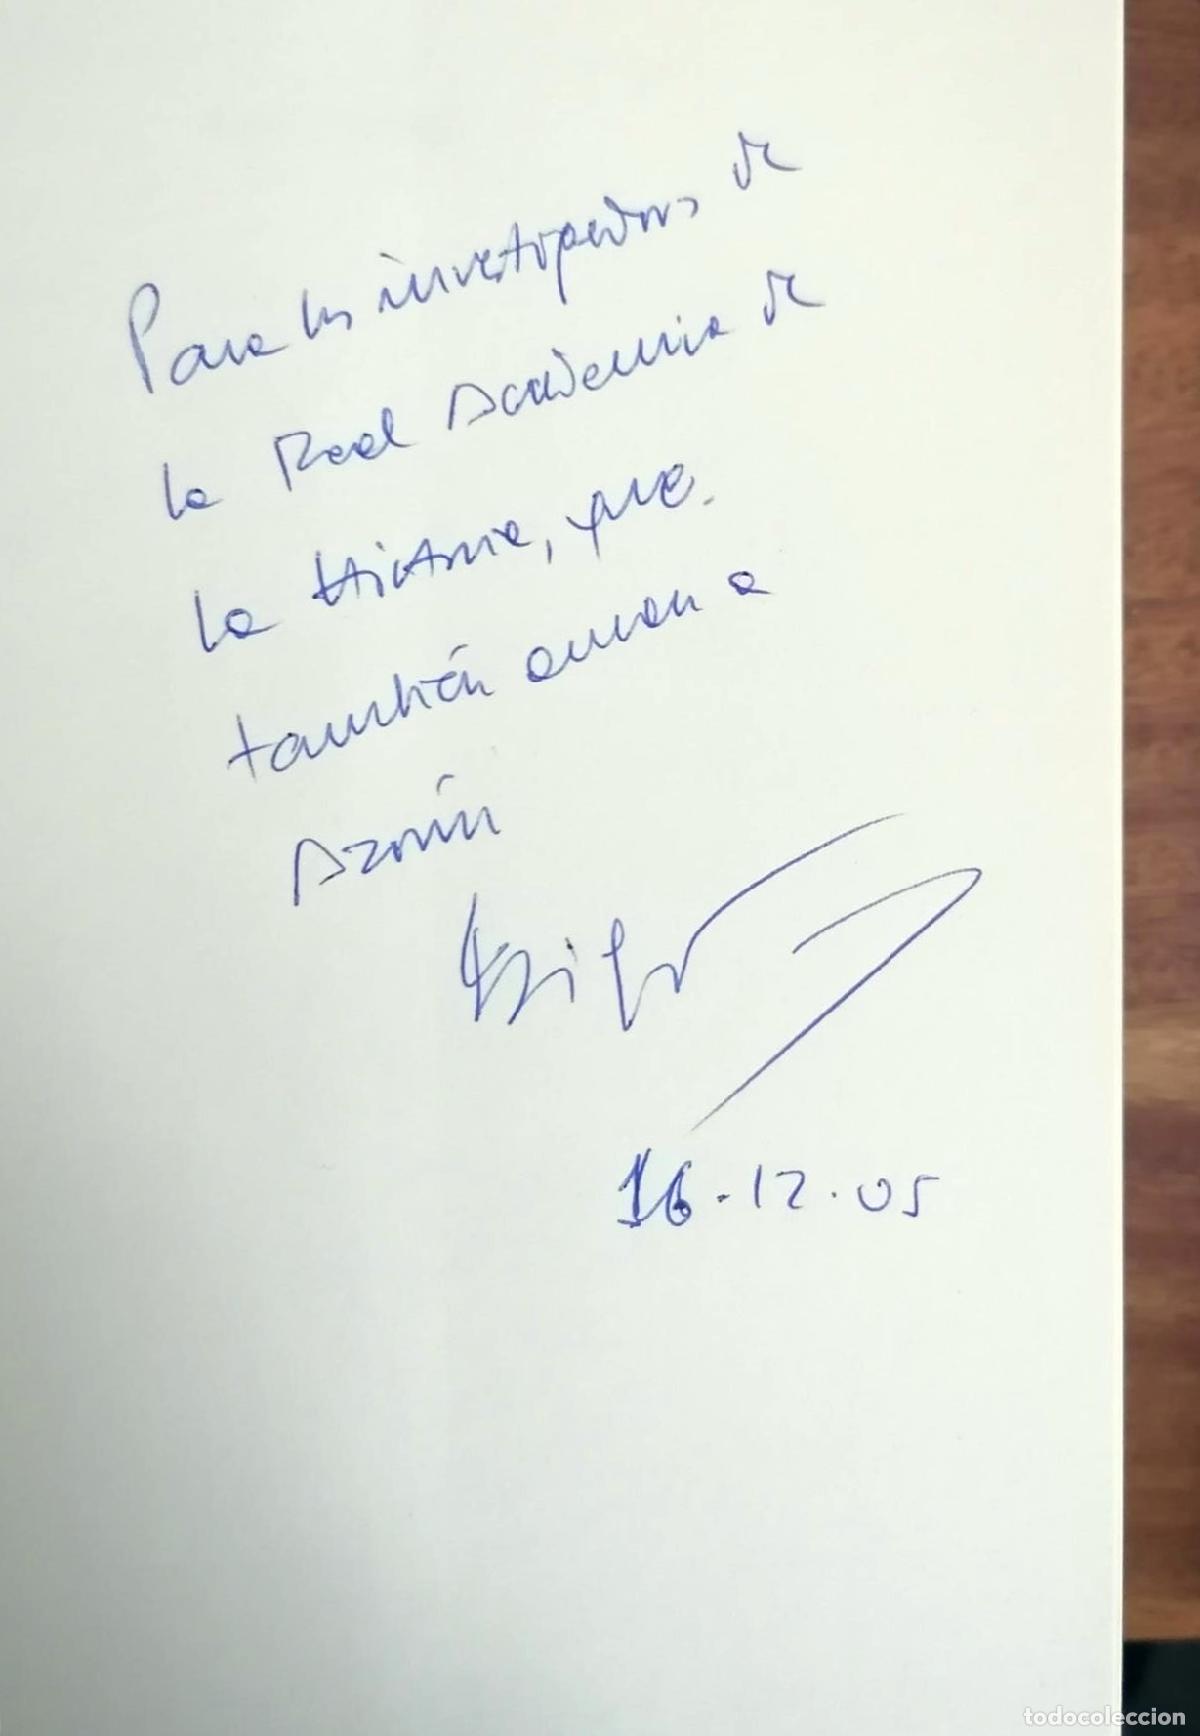 Para los investigadores de
la Real Academia de
la Historia, que
también aman a
Azorín
16.12.05
todocoleccion